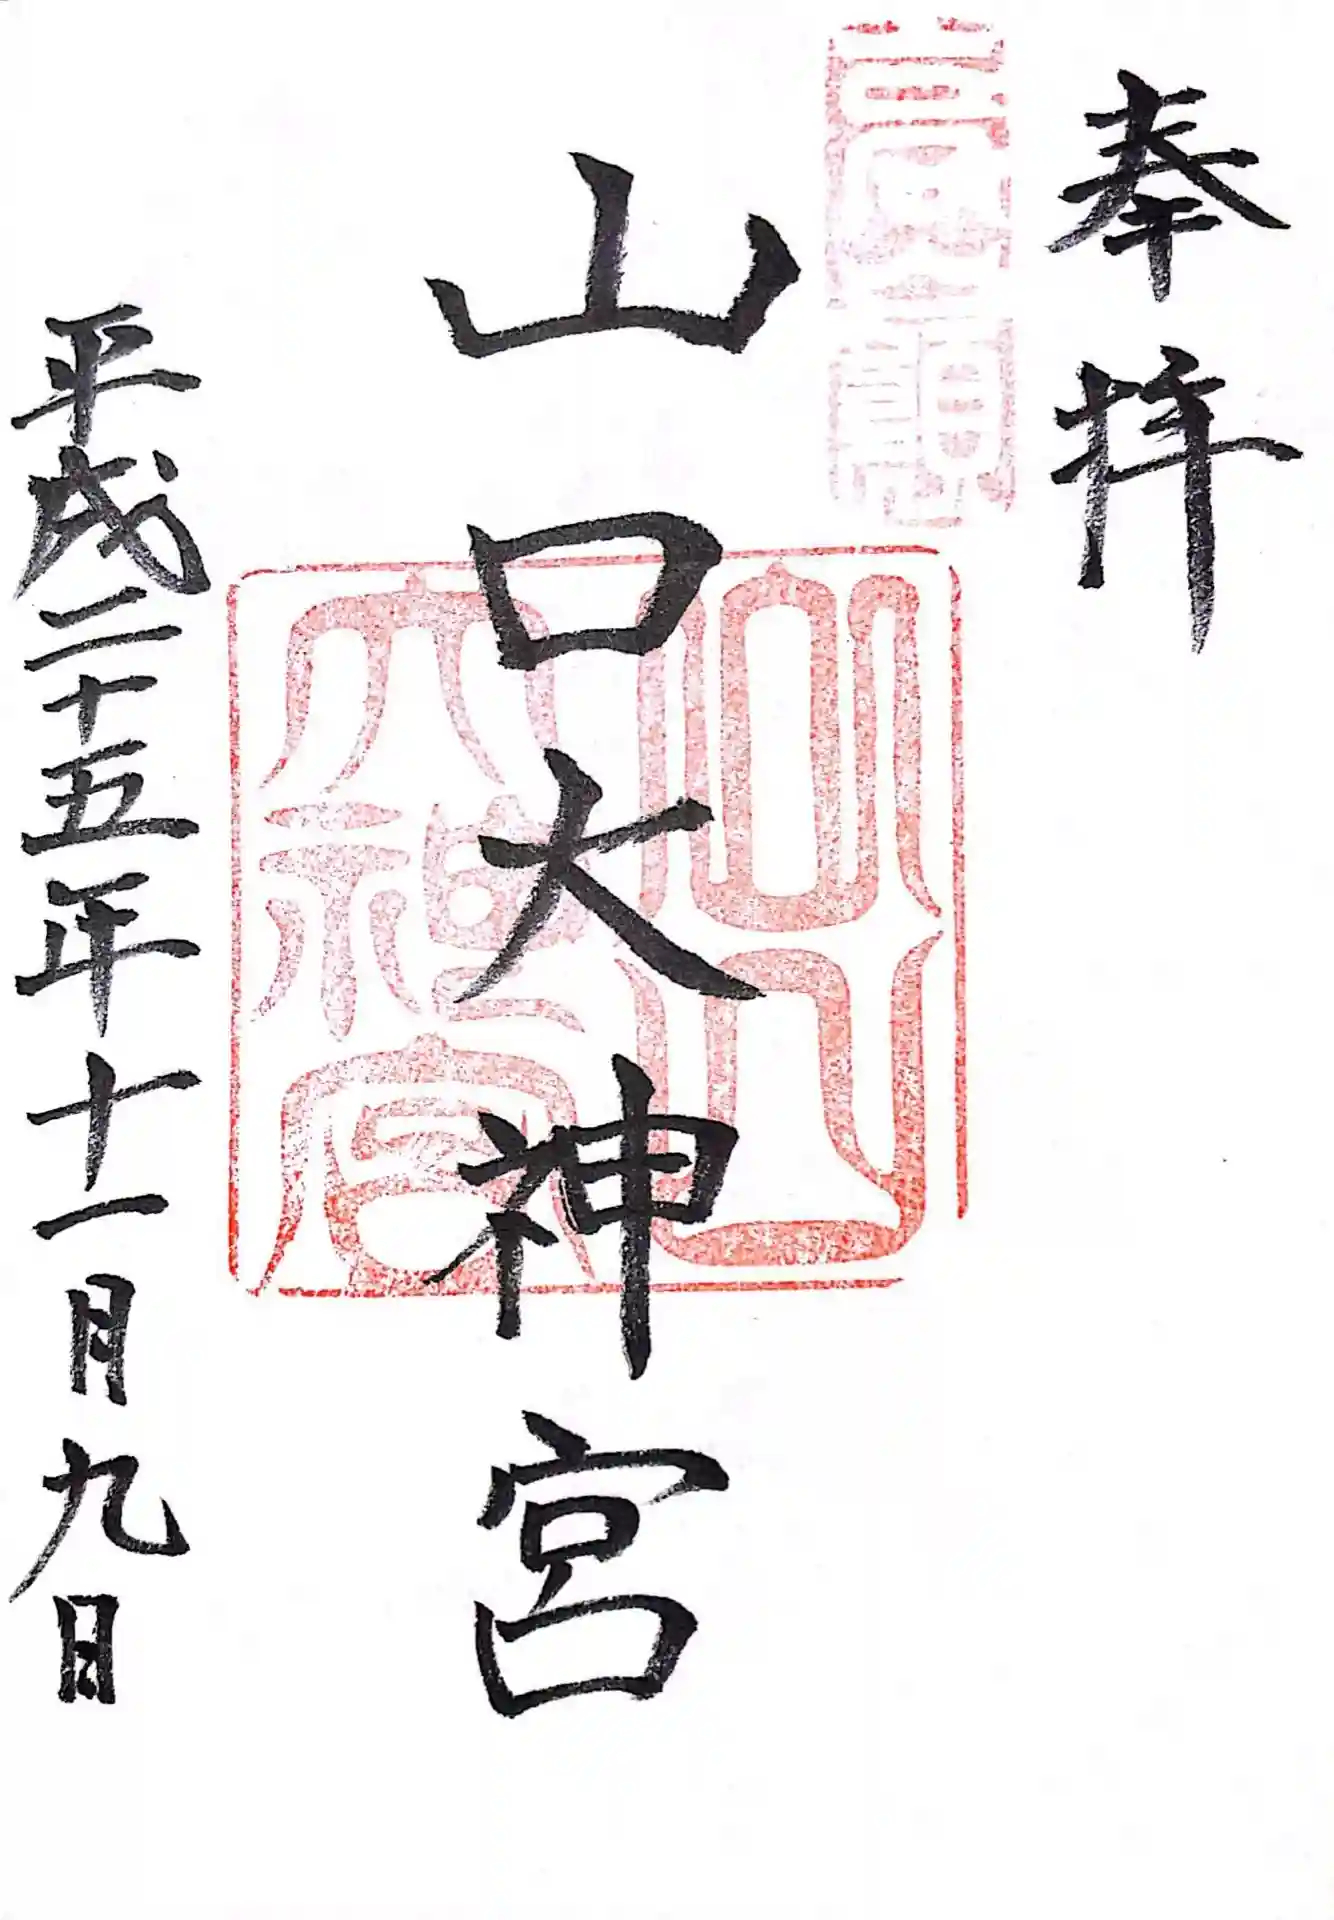 奉拝
山口大神宮
山口大神宮
平成二十五年十一月九日